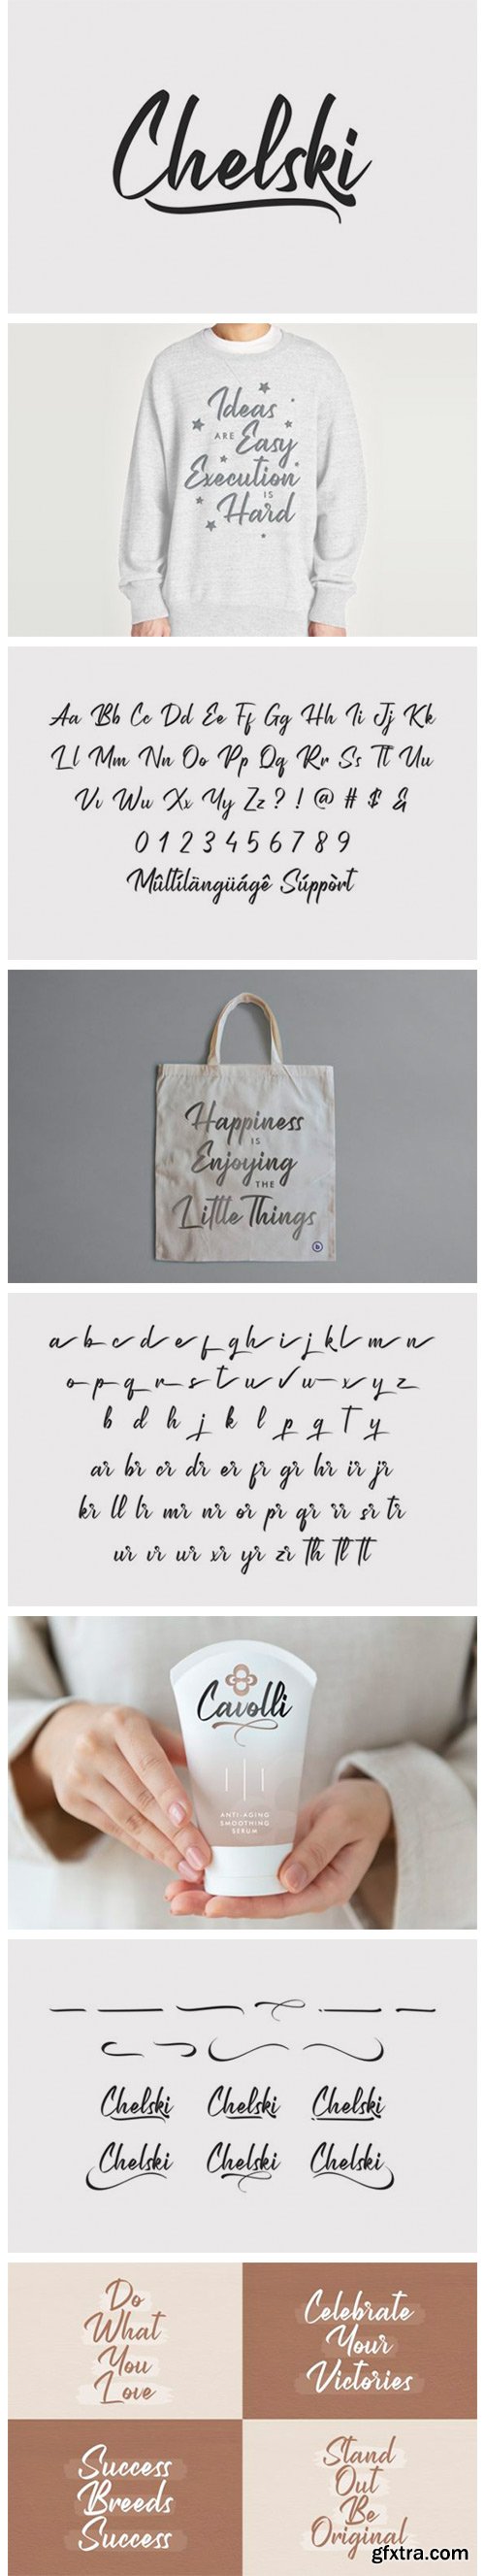 Chelski
Ideas
ARE Easy
Execution
IS
Hard
Aa Bb Cc Dd Ee Ff Gg Hh Ii Jj Kk
Ll Mm Nn Oo Pp Qq Rr Ss Tt Uu
Vv Ww Xx Yy Zz ? ! @ # $ &
0 1 2 3 4 5 6 7 8 9
Mûltílängüágê Súppòrt
Happiness
IS
Enjoying
THE
Little Things
b
a b c d e f g h i j k l m n
o p q r s t u v w x y z
b d h j k l p q T y
ar br cr dr er fr gr hr ir jr
kr ll lr mr nr or pr qr rr sr tr
ur vr wr xr yr zr th tl tt
Cavolli
ANTI-AGING
SMOOTHING
SERUM
Chelski Chelski Chelski
Chelski Chelski Chelski
Do
What
You
Love
Celebrate
Your
Victories
Success
Breeds
Success
Stand
Out
Be
Original
gfxtra.com